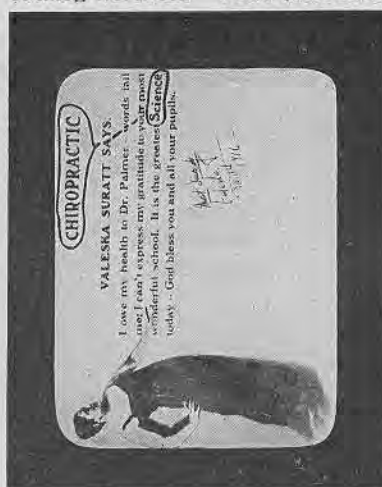 CHIROPRACTIC
VALESKA SURATT SAYS.
I owe my health to Dr. Palmer - words fail
me; I can't express my gratitude to your most
wonderful school. It is the greatest Science
today - God bless you and all your pupils.